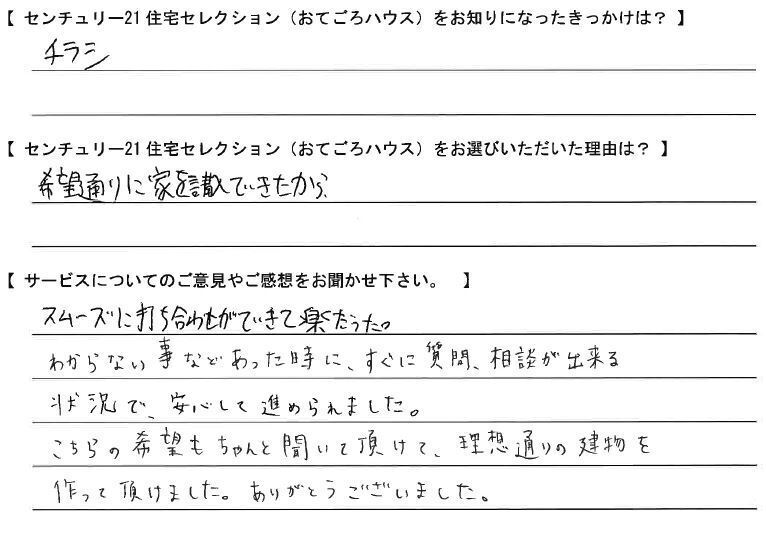 【 センチュリー21住宅セレクション（おてごろハウス）をお知りになったきっかけは？ 】
チラシ
【 センチュリー21住宅セレクション（おてごろハウス）をお選びいただいた理由は？ 】
希望通りに家を設計できたから
【 サービスについてのご意見やご感想をお聞かせ下さい。 】
スムーズに打ち合わせができて楽だった。
わからない事などあった時に、すぐに質問、相談が出来る
状況で、安心して進められました。
こちらの希望もちゃんと聞いて頂けて、理想通りの建物を
作って頂けました。ありがとうございました。